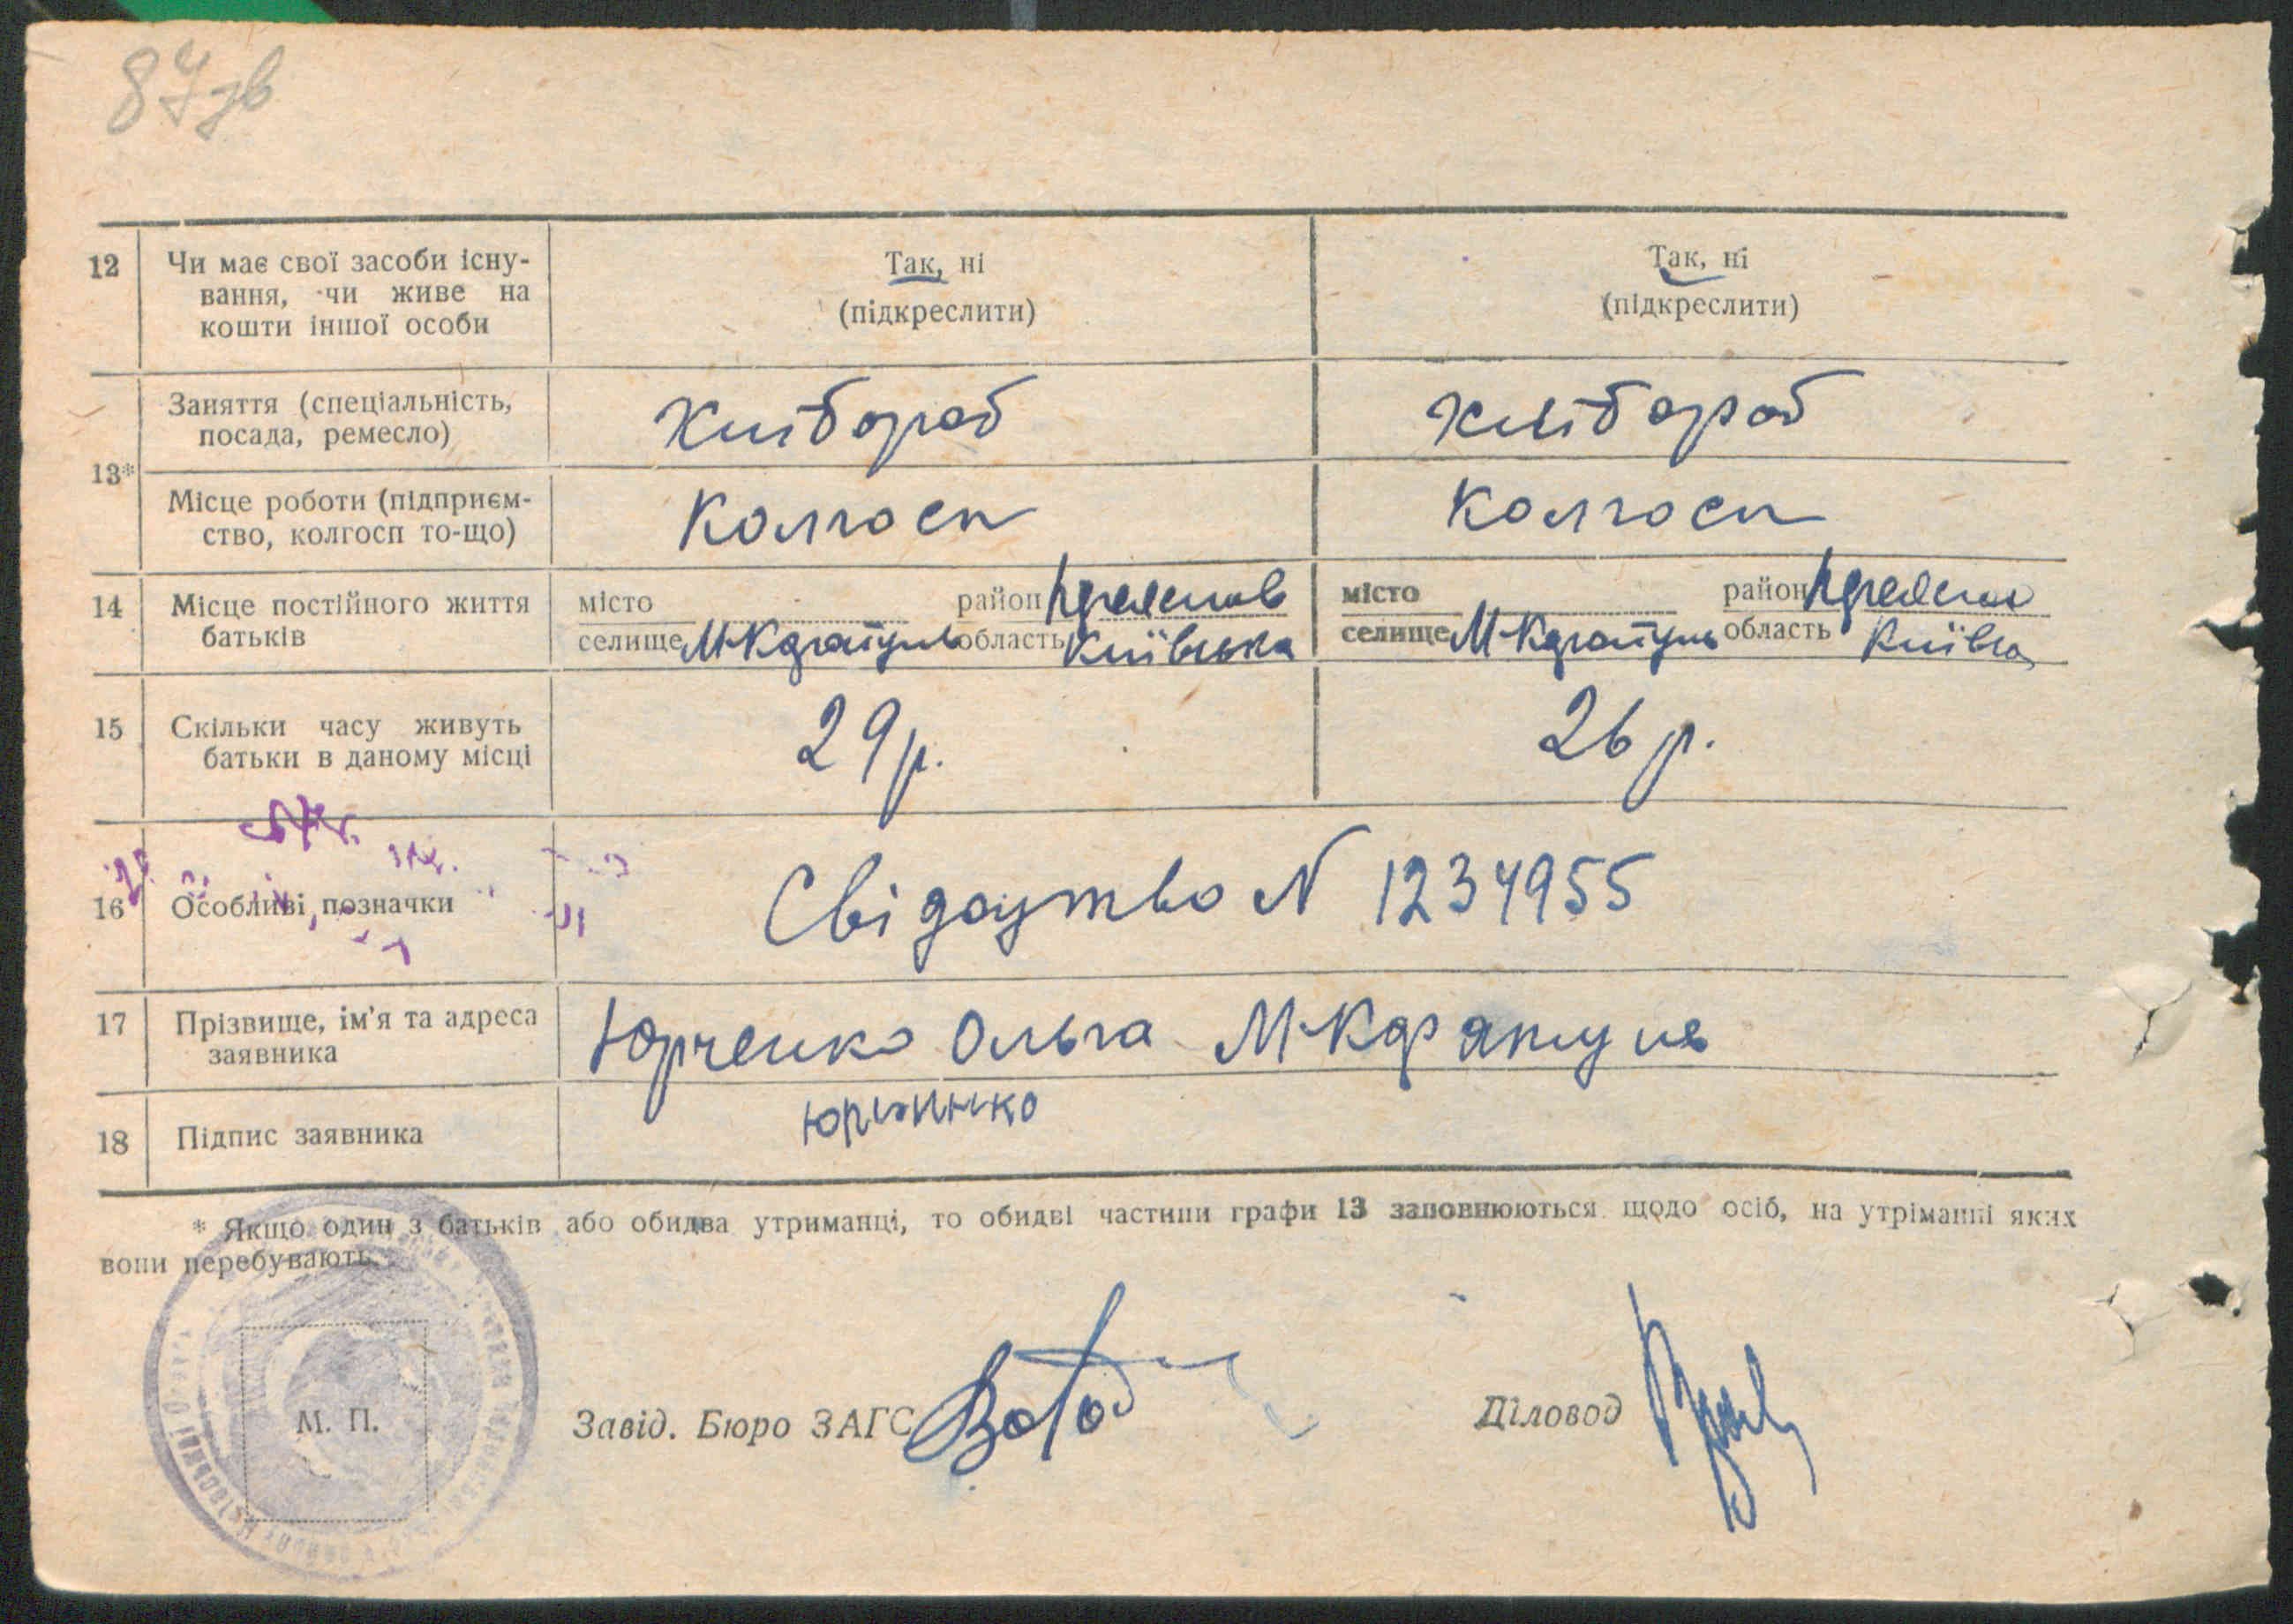 87зв
12 Чи має свої засоби існу- Так, ні Так, ні
вання, чи живе на (підкреслити) (підкреслити)
кошти іншої особи
Заняття (спеціальність, Хлібороб Хлібороб
посада, ремесло)
13*
Місце роботи (підприєм- Колгосп Колгосп
ство, колгосп то-що)
14 Місце постійного життя місто район місто район
батьків селище М-Каратуль область Київська селище М-Каратуль область Київсь
15 Скільки часу живуть 29 р. 26 р.
батьки в даному місці
16 Особливі позначки Свідоцтво N 1234955
17 Прізвище, ім'я та адреса Юрченко Ольга М-Каратуль
заявника
18 Підпис заявника
* Якщо один з батьків або обидва утриманці, то обидві частини графи 13 заповнюються щодо осіб, на утріманні яких
вони перебувають.
М. П. Завід. Бюро ЗАГС Діловод